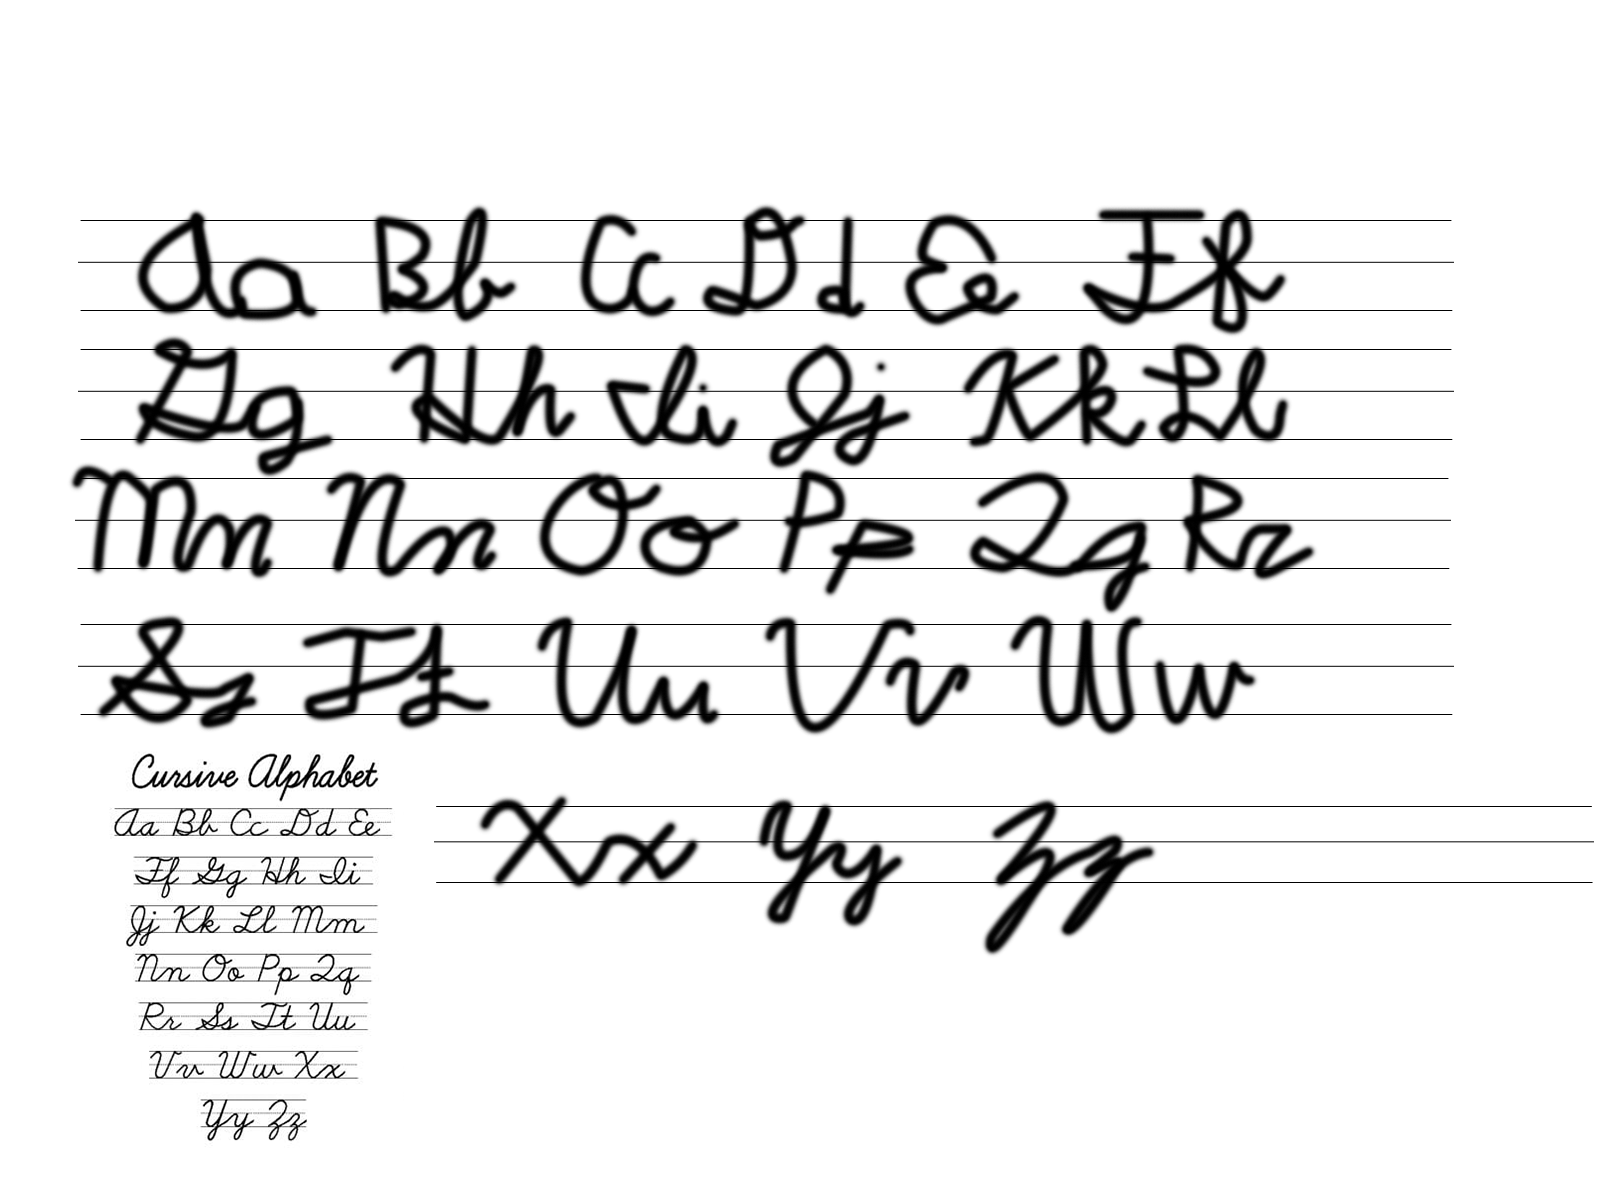 Aa Bb Cc Dd Ee Ff
Gg Hh Ii Jj Kk Ll
Mm Nn Oo Pp Qq Rr
Ss Tt Uu Vv Ww
Xx Yy Zz
Cursive Alphabet
Aa Bb Cc Dd Ee
Ff Gg Hh Ii
Jj Kk Ll Mm
Nn Oo Pp Qq
Rr Ss Tt Uu
Vv Ww Xx
Yy Zz